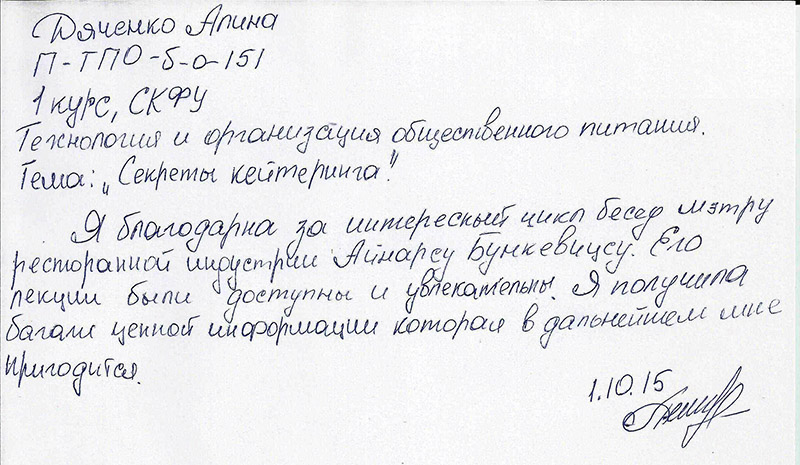 Дяченко Алина
П-ТПО-б-о-151
1 курс, СКФУ
Технология и организация общественного питания.
Тема: „Секреты кейтеринга".
Я благодарна за интересный цикл бесед мэтру
ресторанной индустрии Айнарсу Бункевицсу. Его
лекции были доступны и увлекательны. Я получила
багаж ценной информации которая в дальнейшем мне
пригодится.
1.10.15